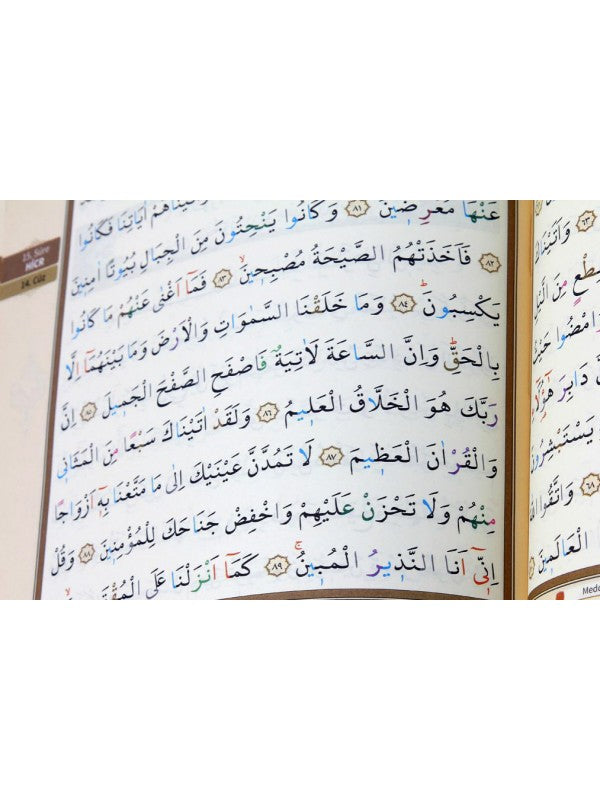 15. Sure
HİCR
14. Cüz
عَنْهَا مُعْرِضٖينَ ﴿٨١﴾ وَكَانُوا يَنْحِتُونَ مِنَ الْجِبَالِ بُيُوتًا اٰمِنٖينَ
﴿٨٢﴾ فَاَخَذَتْهُمُ الصَّيْحَةُ مُصْبِحٖينَۙ ﴿٨٣﴾ فَمَٓا اَغْنٰى عَنْهُمْ مَا كَانُوا
يَكْسِبُونَؕ ﴿٨٤﴾ وَمَا خَلَقْنَا السَّمٰوَاتِ وَالْاَرْضَ وَمَا بَيْنَهُمَٓا اِلَّا
بِالْحَقِّؕ وَاِنَّ السَّاعَةَ لَاٰتِيَةٌ فَاصْفَحِ الصَّفْحَ الْجَمٖيلَ ﴿٨٥﴾ اِنَّ
رَبَّكَ هُوَ الْخَلَّاقُ الْعَلٖيمُ ﴿٨٦﴾ وَلَقَدْ اٰتَيْنَاكَ سَبْعًا مِنَ الْمَثَانٖى
وَالْقُرْاٰنَ الْعَظٖيمَ ﴿٨٧﴾ لَا تَمُدَّنَّ عَيْنَيْكَ اِلٰى مَا مَتَّعْنَا بِهٖٓ اَزْوَاجًا
مِنْهُمْ وَلَا تَحْزَنْ عَلَيْهِمْ وَاخْفِضْ جَنَاحَكَ لِلْمُؤْمِنٖينَ ﴿٨٨﴾ وَقُلْ
اِنّٖٓى اَنَا النَّذٖيرُ الْمُبٖينُۚ ﴿٨٩﴾ كَمَٓا اَنْزَلْنَا عَلَى
﴿٦٣﴾ وَاَتَيْنَاكَ
مِنَ الَّيْلِ
وَامْضُوا
دَابِرَ هٰٓؤُلَٓاءِ
يَسْتَبْشِرُونَ
﴿٦٨﴾ وَاتَّقُوا
الْعَالَمٖينَ